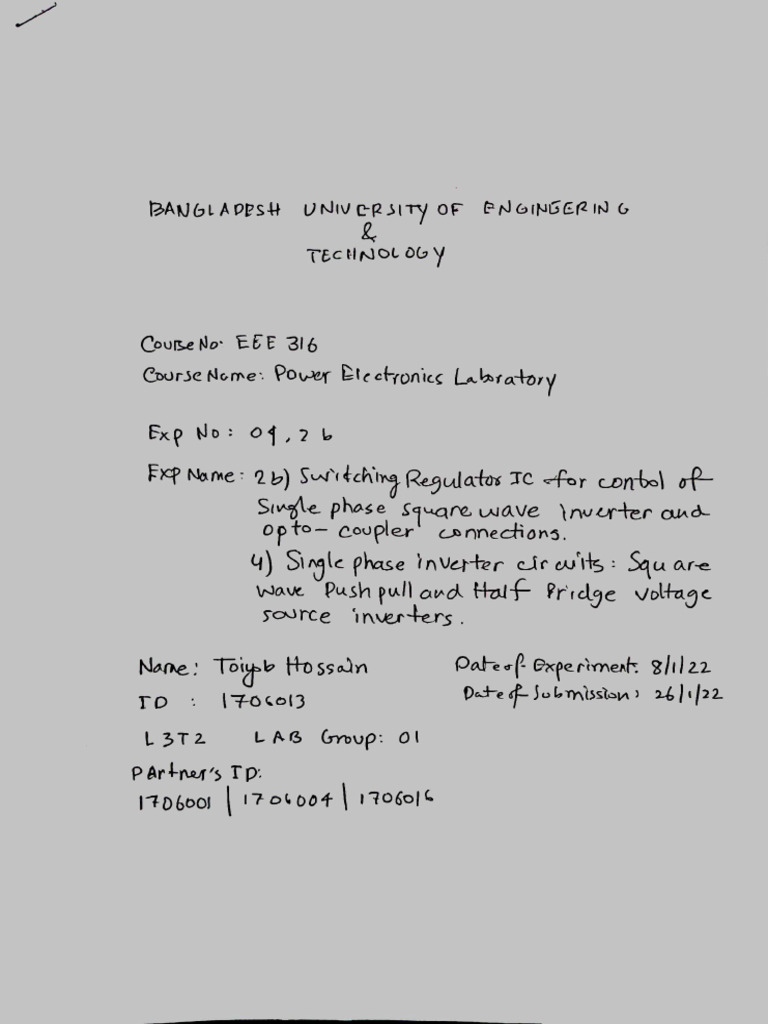 BANGLADESH UNIVERSITY OF ENGINEERING
&
TECHNOLOGY
Course No. EEE 316
Course Name: Power Electronics Laboratory
Exp No: 04, 2b
Exp Name: 2b) Switching Regulator IC for contol of
Single phase square wave inverter and
opto-coupler connections.
4) Single phase inverter circuits: Square
wave Push pull and Half Bridge voltage
source inverters.
Name: Toiyab Hossain
Date of Experiment: 8/1/22
ID : 1706013
Date of Submission: 26/1/22
L3T2 LAB Group: 01
Partner's ID:
1706001 | 1706004 | 1706016